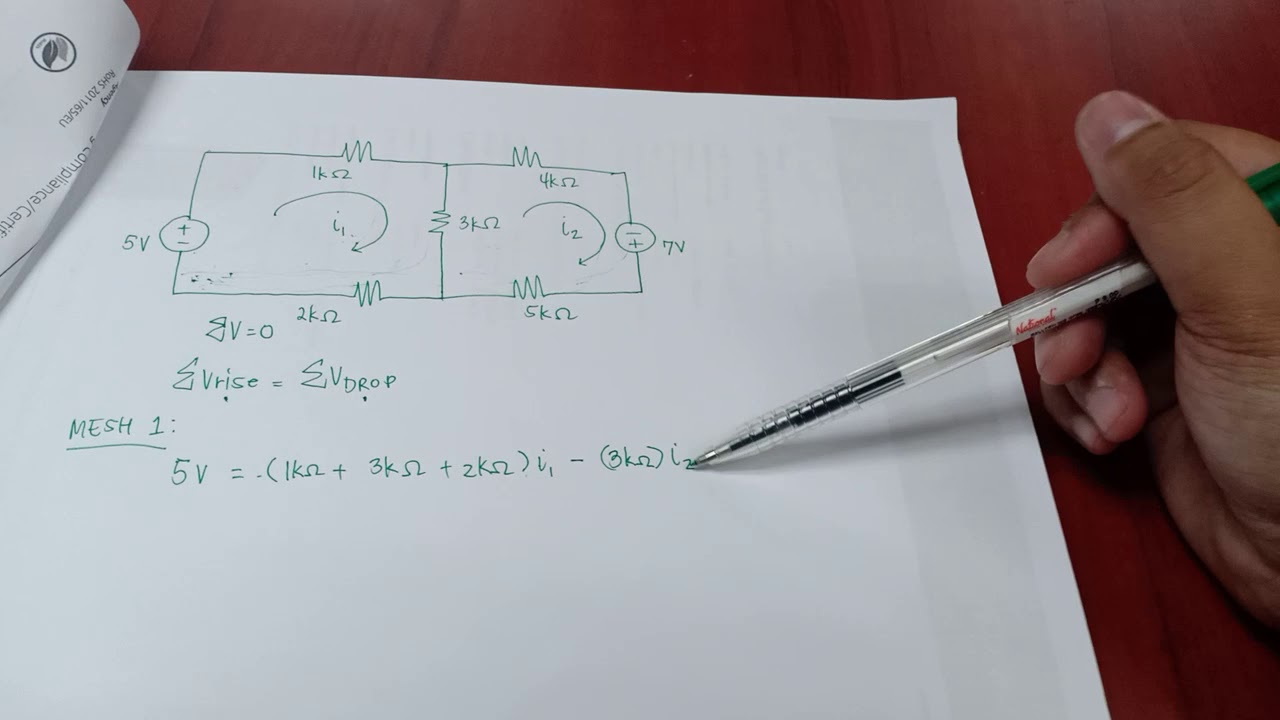 RoHS 2011/65/EU
1kΩ
4kΩ
5V
+
−
i₁
3kΩ
i₂
−
+
7V
2kΩ
5kΩ
ΣV=0
ΣVrise = ΣVDROP
MESH 1:
5V = (1kΩ + 3kΩ + 2kΩ) i₁ − (3kΩ) i₂
National